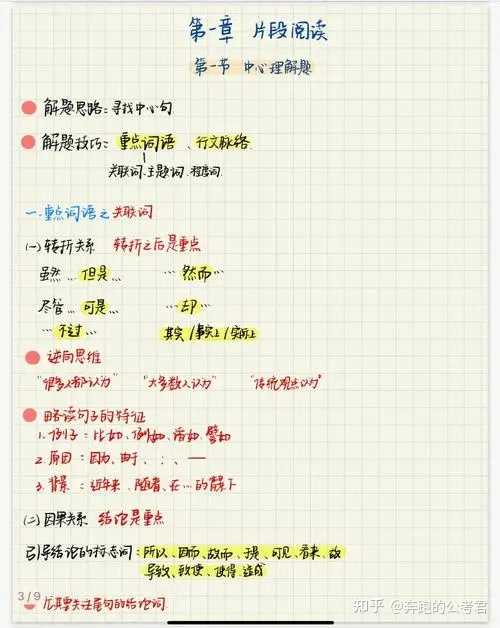 第一章 片段阅读
第一节 中心理解题
解题思路：寻找中心句
解题技巧：重点词语、行文脉络
关联词.主题词.程度词
一.重点词语之关联词
(一)转折关系 转折之后是重点
虽然…但是… …然而…
尽管…可是… …却…
…不过… 其实/事实上/实际上
逆向思维
"很多人都认为" "大多数人认为" "传统观点认为"
略读句子的特征
1.例子：比如、例如、诸如、譬如
2.原因：因为、由于、：、——
3.背景：近年来、随着、在…的背景下
(二)因果关系 结论是重点
引导结论的标志词：所以、因而、故而、于是、可见、看来、故
导致、致使、使得、造成
3/9
尤其要关注尾句的结论词
知乎 @奔跑的公考君